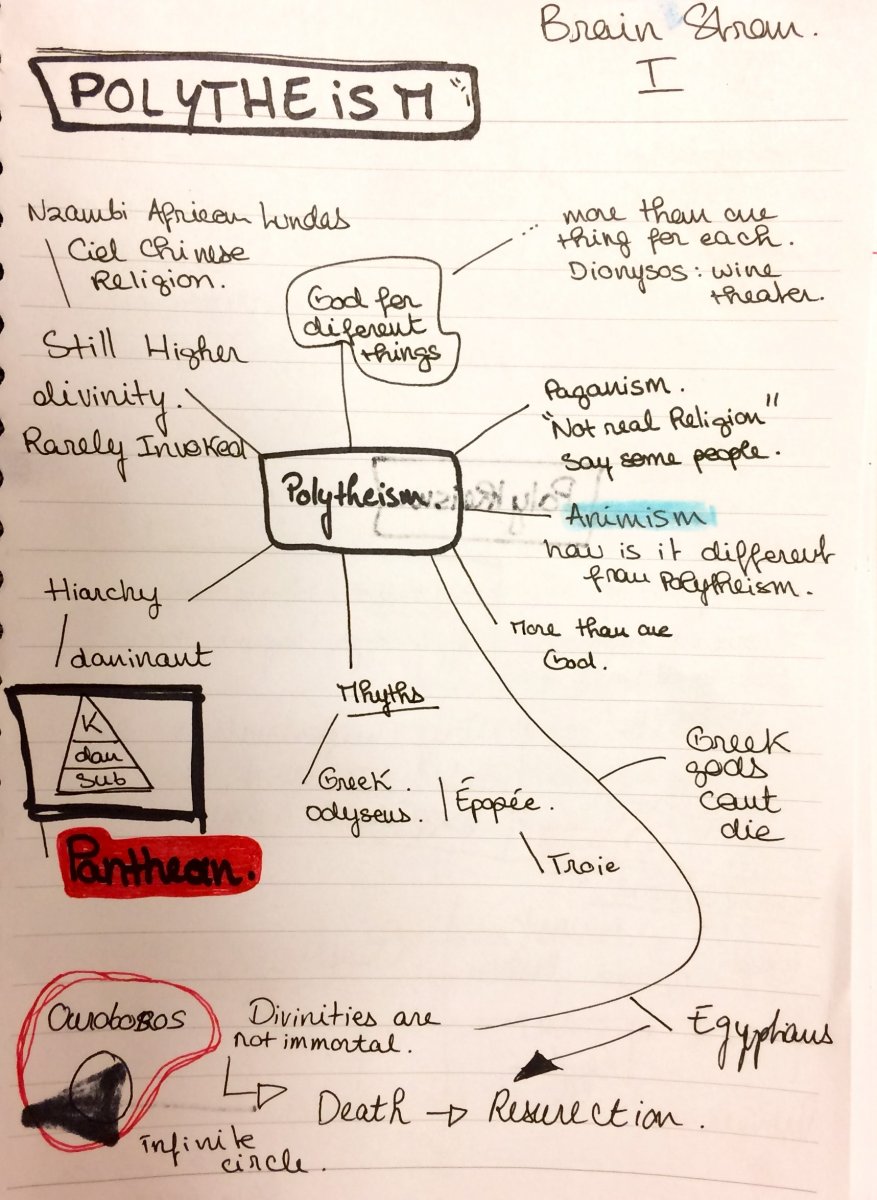 Brain Strom.
I
POLYTHEiSM
Nzambi African Lundas
Ciel Chinese
Religion.
Still Higher
divinity.
Rarely Invoked
God for
diferent
things
more than one
thing for each.
Dionysos: wine
theater.
Paganism.
"Not real Religion"
say some people.
Polytheism.
Animism
how is it different
from Polytheism.
More than one
God.
Hiarchy
dominant
K
dom
sub
Pantheon.
Mhyths
Greek.
odyseus.
Épopée.
Troie
Greek
gods
cant
die
Ouroboros
Infinite
circle.
Divinities are
not immortal.
Egyptians
Death → Resurection.